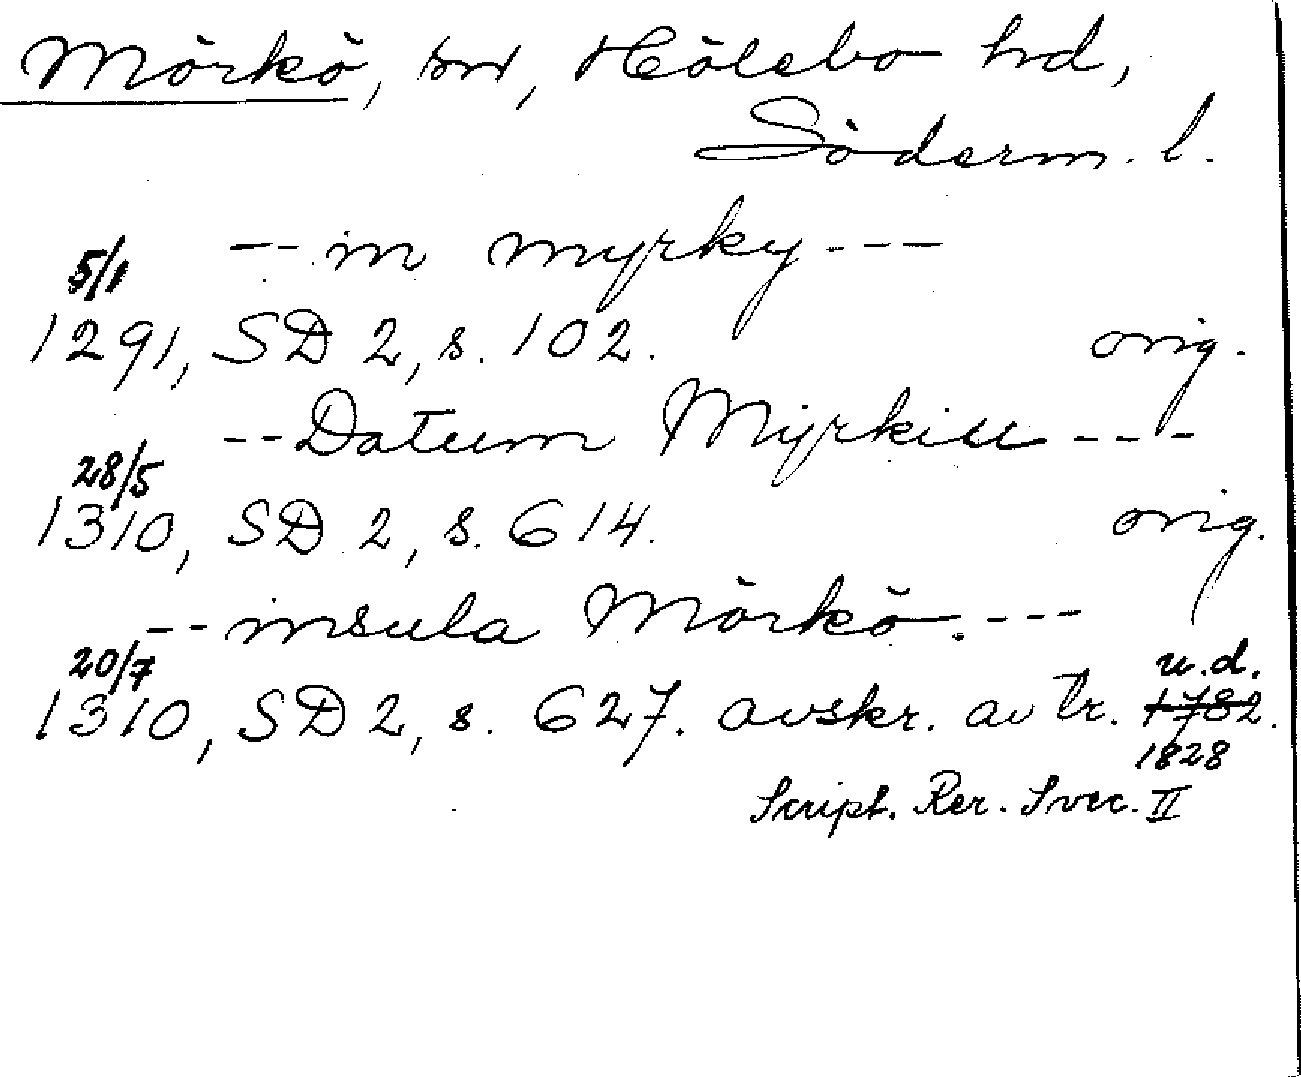 Mörkö, sn, Hölebo hd,
Söderm. l.
-- in myrky ---
5/1
1291, SD 2, s. 102. orig.
-- Datum Myrkiu ---
28/5
1310, SD 2, s. 614. orig.
-- insula Mörkö. ---
20/7 u.d.
1310, SD 2, s. 627. avskr. av tr. 1782.
1828
Script. Rer. Svec. II